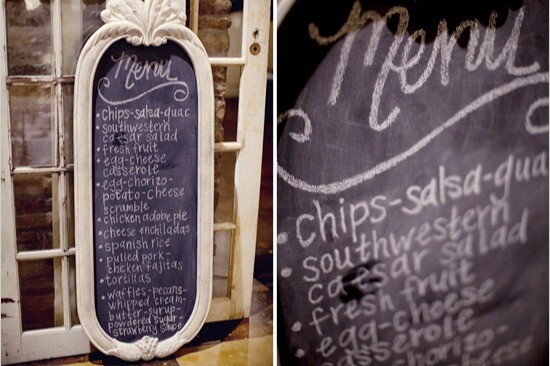 Menu
• chips-salsa-guac
• southwestern
caesar salad
• fresh fruit
• egg-cheese
casserole
• egg-chorizo-
potato-cheese
scramble
• chicken adobe pie
• cheese enchiladas
• spanish rice
• pulled pork-
chicken fajitas
• tortillas
• waffles-pecans-
whipped cream-
butter-syrup-
powdered sugar-
strawberry sauce
Menu
• chips-salsa-gua
• southwestern
caesar salad
• fresh fruit
• egg-cheese
casserole
chorizo-